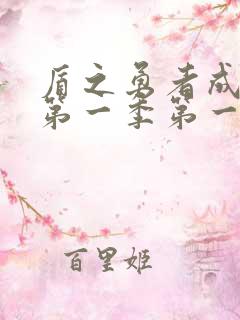 盾之勇者成
第一季第一
百里姬